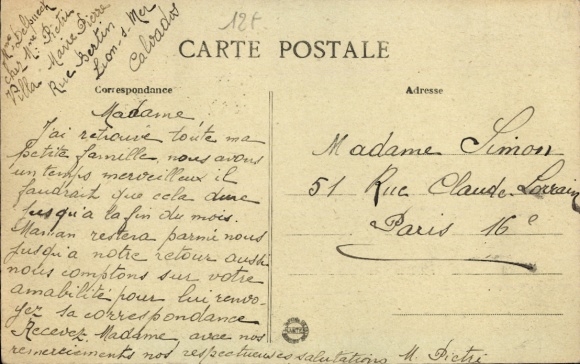 Mme Delsuech
Chez Mme Pietri
Villa Marie Pierre
Rue Bertin
Lion-s-Mer
Calvados
12f
CARTE POSTALE
Correspondance
Adresse
Madame
J'ai retrouvé toute ma
petite famille, nous avons
un temps merveilleux il
faudrait que cela dure
jusqu'a la fin du mois.
Maman restera parmi nous
jusqu'a notre retour aussi
nous comptons sur votre
amabilité pour lui renvo-
yez sa correspondance
Recevez, Madame, avec nos
remerciements nos respectueuses salutations M. Pietri
Madame Simon
51 Rue Claude-Lorrain
Paris 16e
CARTE